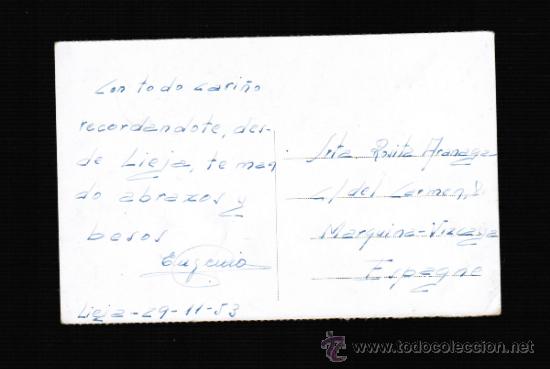 Con todo cariño
recordandote, des-
de Lieja, te man
do abrazos y
besos
Eugenio
Lieja-29-11-53
Srta Rosita Aranaga
C/ del Carmen,
Marquina-Vizcaya
Espagne
www.todocoleccion.net